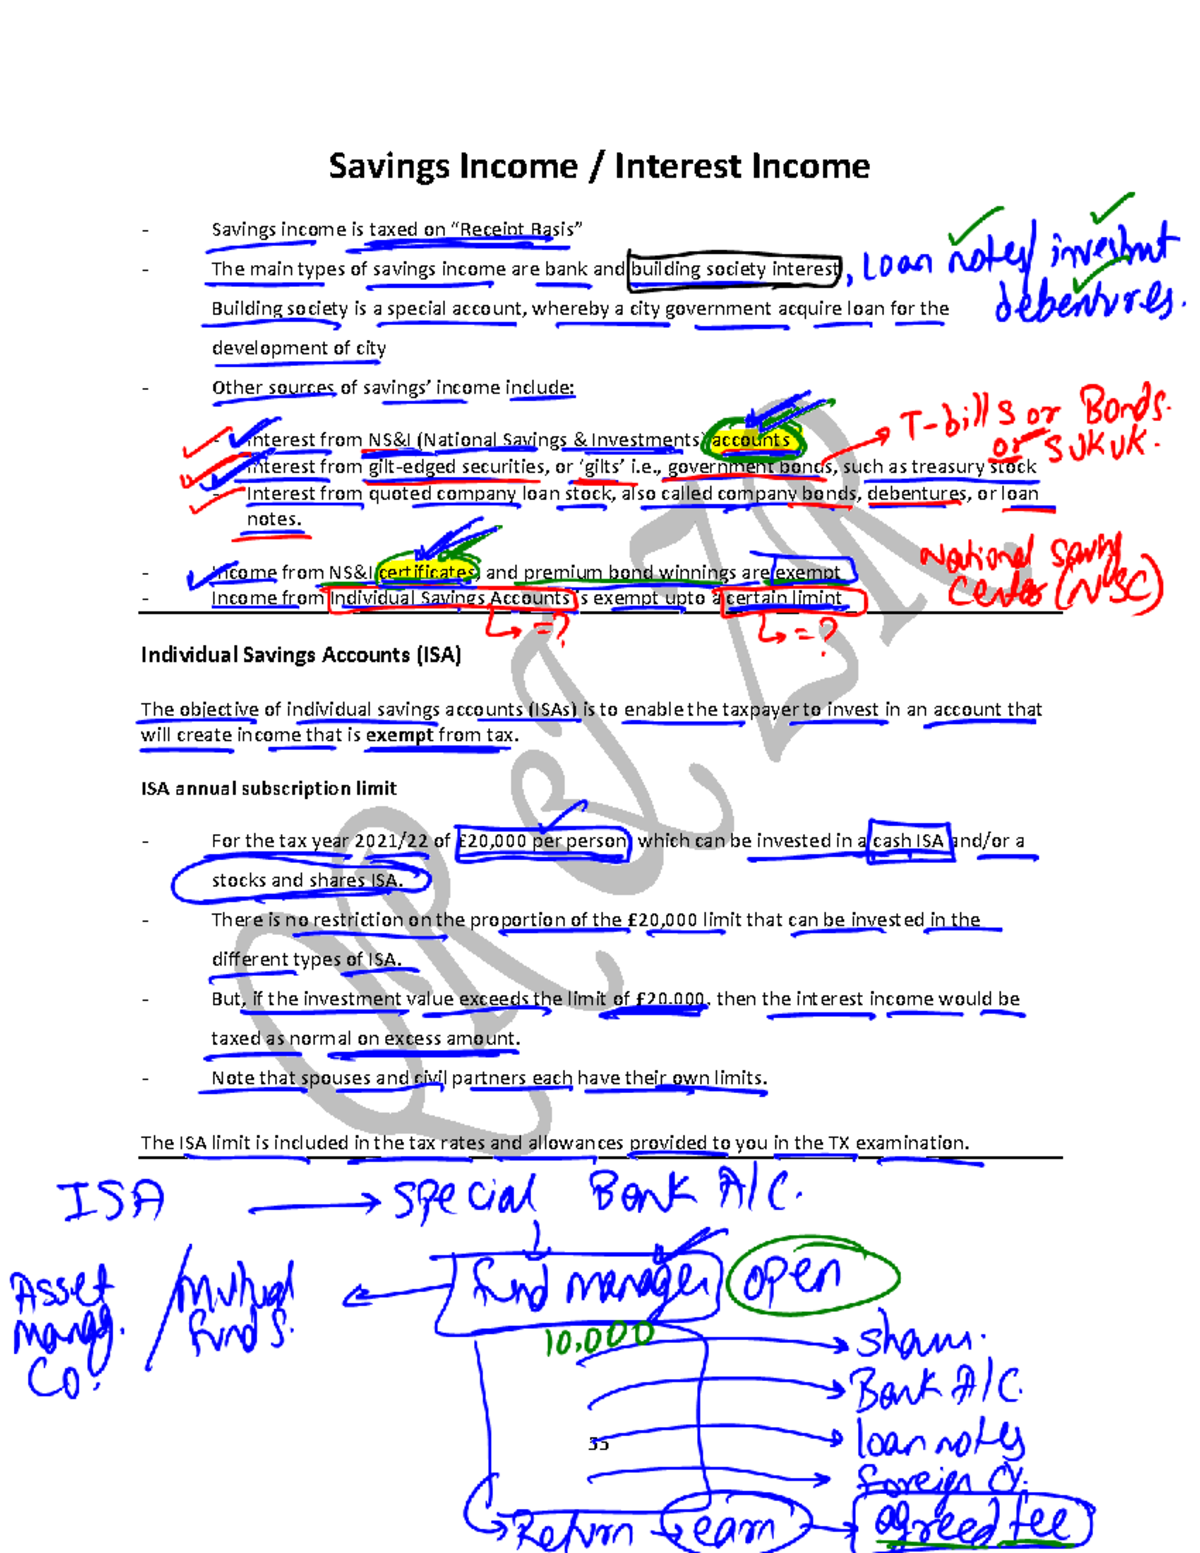 Savings Income / Interest Income
- Savings income is taxed on “Receipt Basis”
- The main types of savings income are bank and building society interest, Loan notes/ investment
debentures.
Building society is a special account, whereby a city government acquire loan for the
development of city
- Other sources of savings’ income include:
T-bills or Bonds.
or SUKUK.
- Interest from NS&I (National Savings & Investments) accounts
- Interest from gilt-edged securities, or ‘gilts’ i.e., government bonds, such as treasury stock
- Interest from quoted company loan stock, also called company bonds, debentures, or loan
notes.
National Saving
Center (NSC)
- Income from NS&I certificates, and premium bond winnings are exempt
- Income from Individual Savings Accounts is exempt upto a certain limint
= ?
= ?
Individual Savings Accounts (ISA)
The objective of individual savings accounts (ISAs) is to enable the taxpayer to invest in an account that
will create income that is exempt from tax.
ISA annual subscription limit
- For the tax year 2021/22 of £20,000 per person, which can be invested in a cash ISA and/or a
stocks and shares ISA.
- There is no restriction on the proportion of the £20,000 limit that can be invested in the
different types of ISA.
- But, if the investment value exceeds the limit of £20.000, then the interest income would be
taxed as normal on excess amount.
- Note that spouses and civil partners each have their own limits.
The ISA limit is included in the tax rates and allowances provided to you in the TX examination.
ISA → Special Bank A/C.
Asset / Mutual
funds.
Co.
fund manager open
10,000
Bank A/C.
loan notes
foreign Cy.
35
Return earn → agreed fee